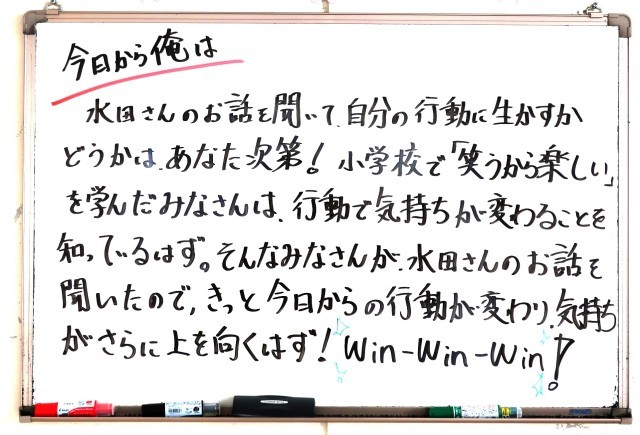 今日から俺は
水田さんのお話を聞いて、自分の行動に生かすか
どうかは、あなた次第！小学校で「笑うから楽しい」
を学んだみなさんは、行動で気持ちが変わることを
知っているはず。そんなみなさんが、水田さんのお話を
聞いたので、きっと今日からの行動が変わり、気持ち
がさらに上を向くはず！Win-Win-Win！